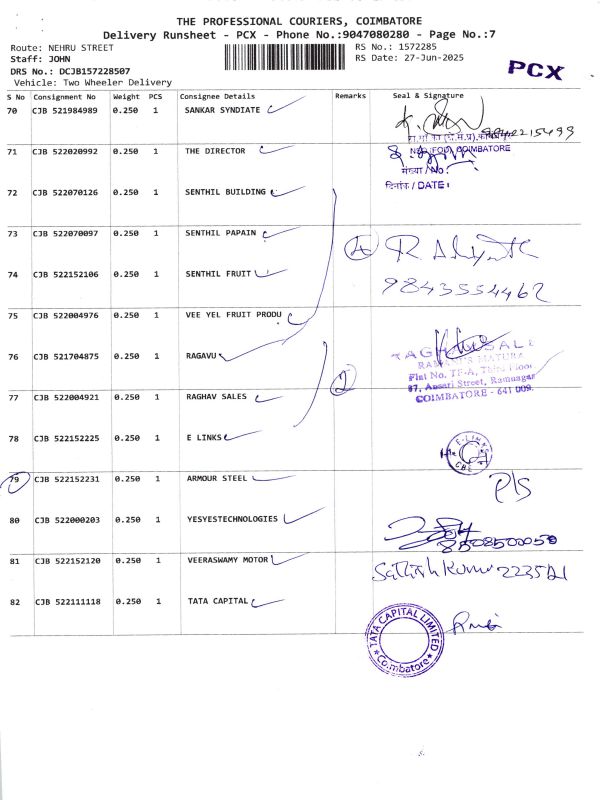 THE PROFESSIONAL COURIERS, COIMBATORE
Delivery Runsheet - PCX - Phone No.:9047080280 - Page No.:7
Route: NEHRU STREET
RS No.: 1572285
Staff: JOHN
RS Date: 27-Jun-2025
DRS No.: DCJB157228507
PCX
Vehicle: Two Wheeler Delivery
S No Consignment No Weight PCS Consignee Details Remarks Seal & Signature
70 CJB 521984989 0.250 1 SANKAR SYNDIATE
71 CJB 522020992 0.250 1 THE DIRECTOR
COIMBATORE
संख्या / No:
दिनांक / DATE:
72 CJB 522070126 0.250 1 SENTHIL BUILDING
73 CJB 522070097 0.250 1 SENTHIL PAPAIN
74 CJB 522152106 0.250 1 SENTHIL FRUIT
9843554462
75 CJB 522004976 0.250 1 VEE YEL FRUIT PRODU
76 CJB 521704875 0.250 1 RAGAVU
77 CJB 522004921 0.250 1 RAGHAV SALES
87, Ansari Street, Ramnagar
COIMBATORE - 641 009.
78 CJB 522152225 0.250 1 E LINKS
E-LINKS
CBE
79 CJB 522152231 0.250 1 ARMOUR STEEL
P/S
80 CJB 522000203 0.250 1 YESYESTECHNOLOGIES
81 CJB 522152120 0.250 1 VEERASWAMY MOTOR
Sathish Kumar
82 CJB 522111118 0.250 1 TATA CAPITAL
TATA CAPITAL LIMITED
Coimbatore